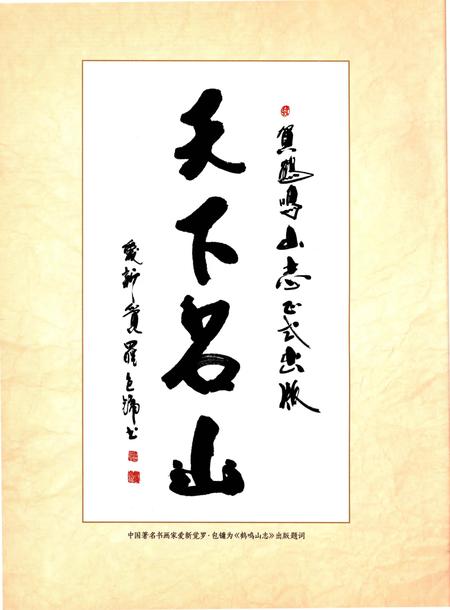 賀鶴鳴山志正式出版
天下名山
愛新覺羅包鏞书
中国著名书画家爱新觉罗·包镛为《鹤鸣山志》出版题词